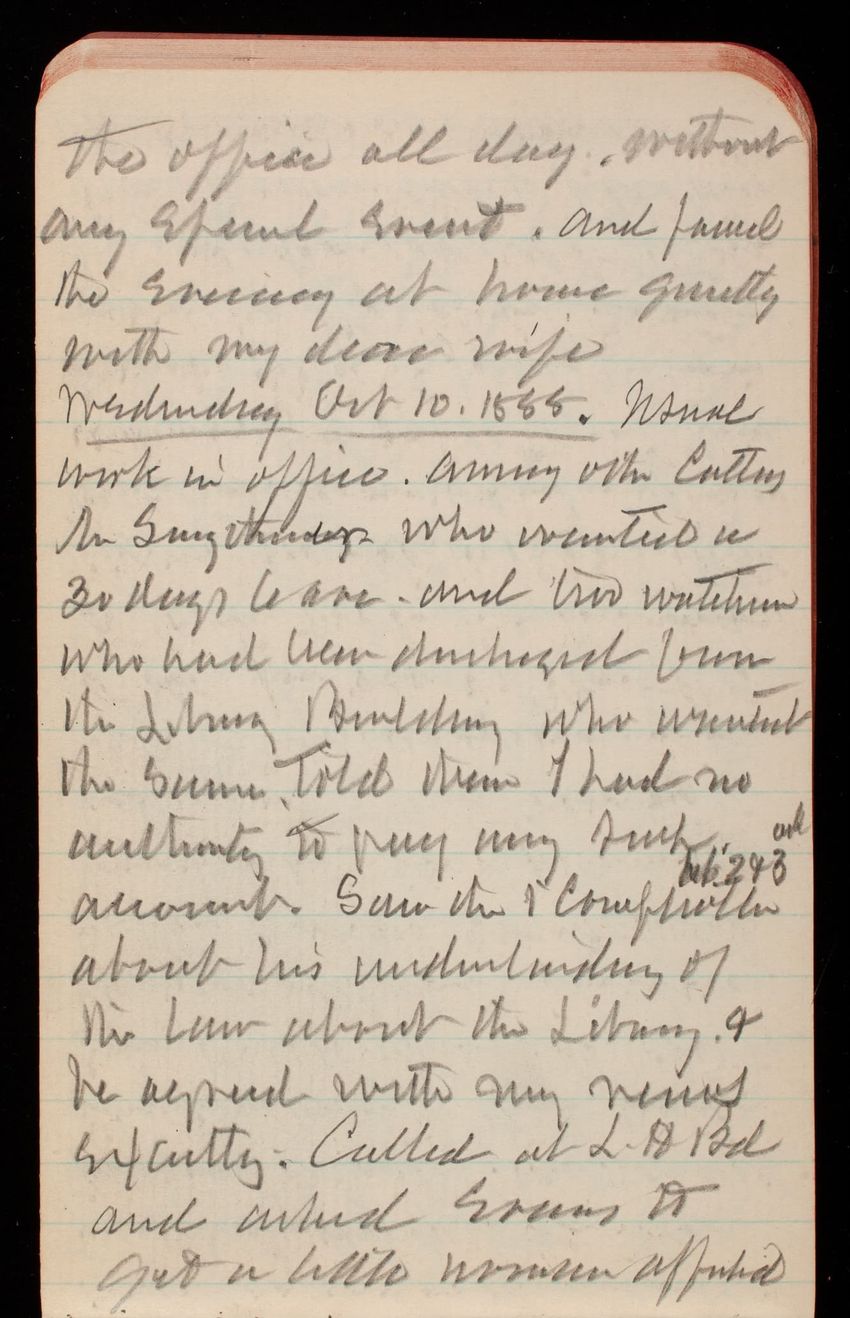 the office all day. without
any Special Event. and passed
the Evening at home quietly
with my dear wife
Wednesday Oct 10. 1888. Usual
work in office. among other Callers
Mr who wanted a
30 days leave. and two watchmen
who had been discharged from
the Library Building who wanted
the Same. Told them I had no
authority to pay any such
243
accounts. Saw the 1 Comptroller
about his understanding of
the law about the Library. &
he agreed with my views
Exactly. Called at L. H Bd
and asked Evans to
get a little woman appointed